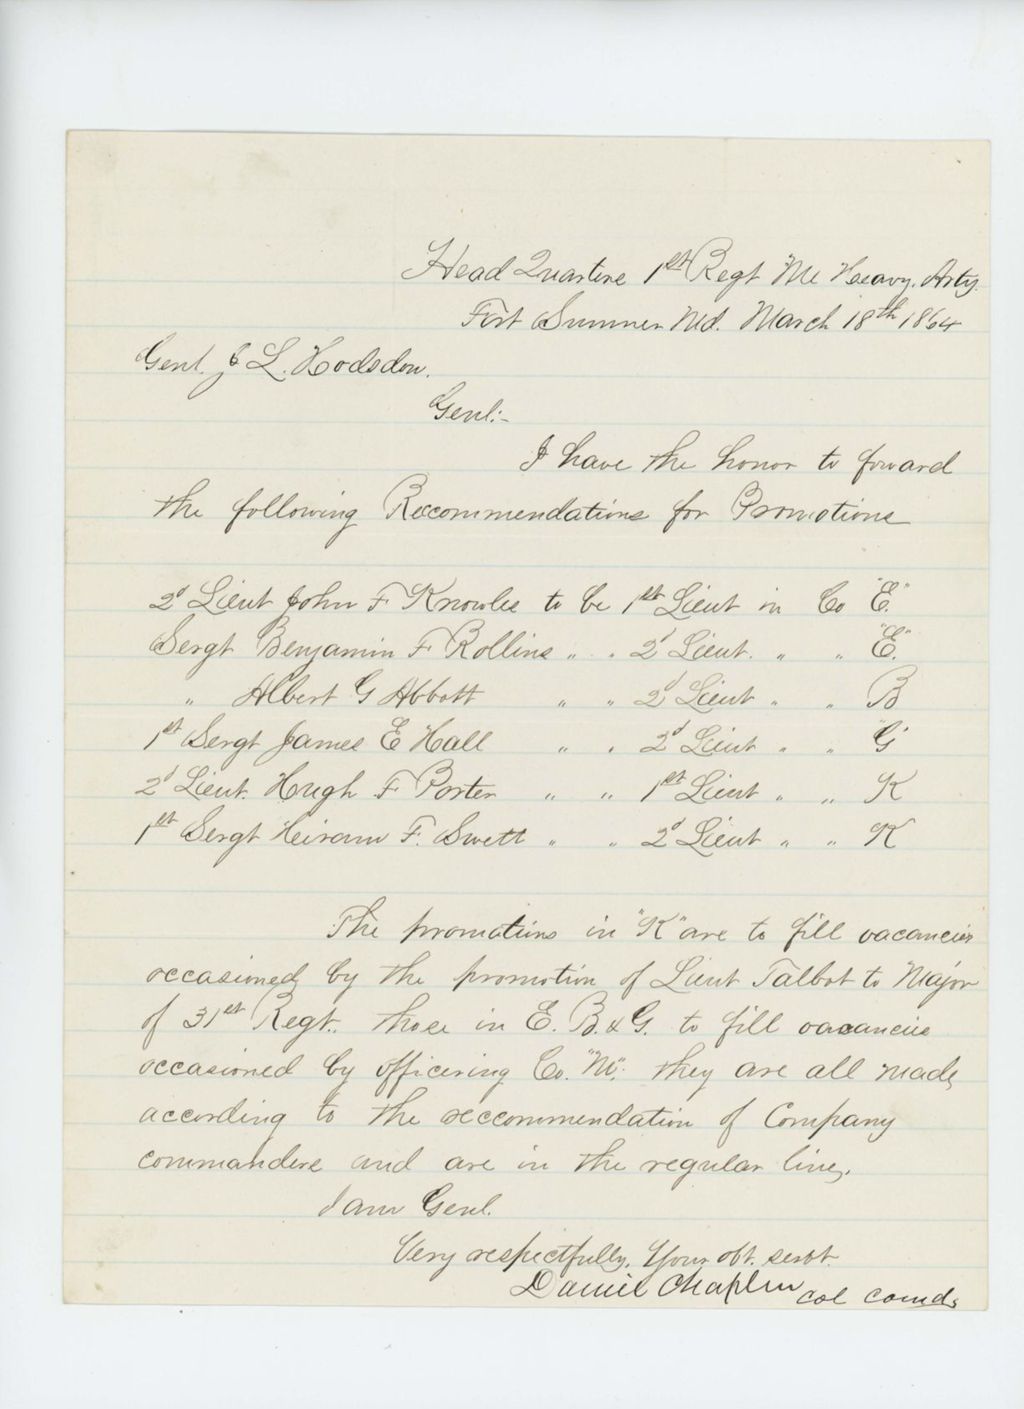 Head Quarters 1st Regt Me Heavy. Arty.
Fort Sumner Md. March 18th 1864
Genl. J L. Hodsdon.
Genl:-
I have the honor to forward
the following Reccommendations for Promotions
2d Lieut John F Knowles to be 1st Lieut in Co "E."
Sergt Benjamin F Rollins " " 2d Lieut. " " "E."
" Albert G Abbott " " 2d Lieut " " B
1st Sergt James E Hall " " 2d Lieut " " "G"
2d Lieut. Hugh F Porter " " 1st Lieut " " K
1st Sergt Heiram F. Swett " " 2d Lieut " " K
The promotions in "K" are to fill vacancies
occasioned by the promotion of Lieut Talbot to Major
of 31st Regt. those in E. B. & G. to fill vacancies
occasioned by officering Co. "M". they are all made
according to the reccommendation of Company
commanders and are in the regular line.
I am Genl.
Very respectfully. Your obt. servt.
Daniel Chaplin Col Comdg